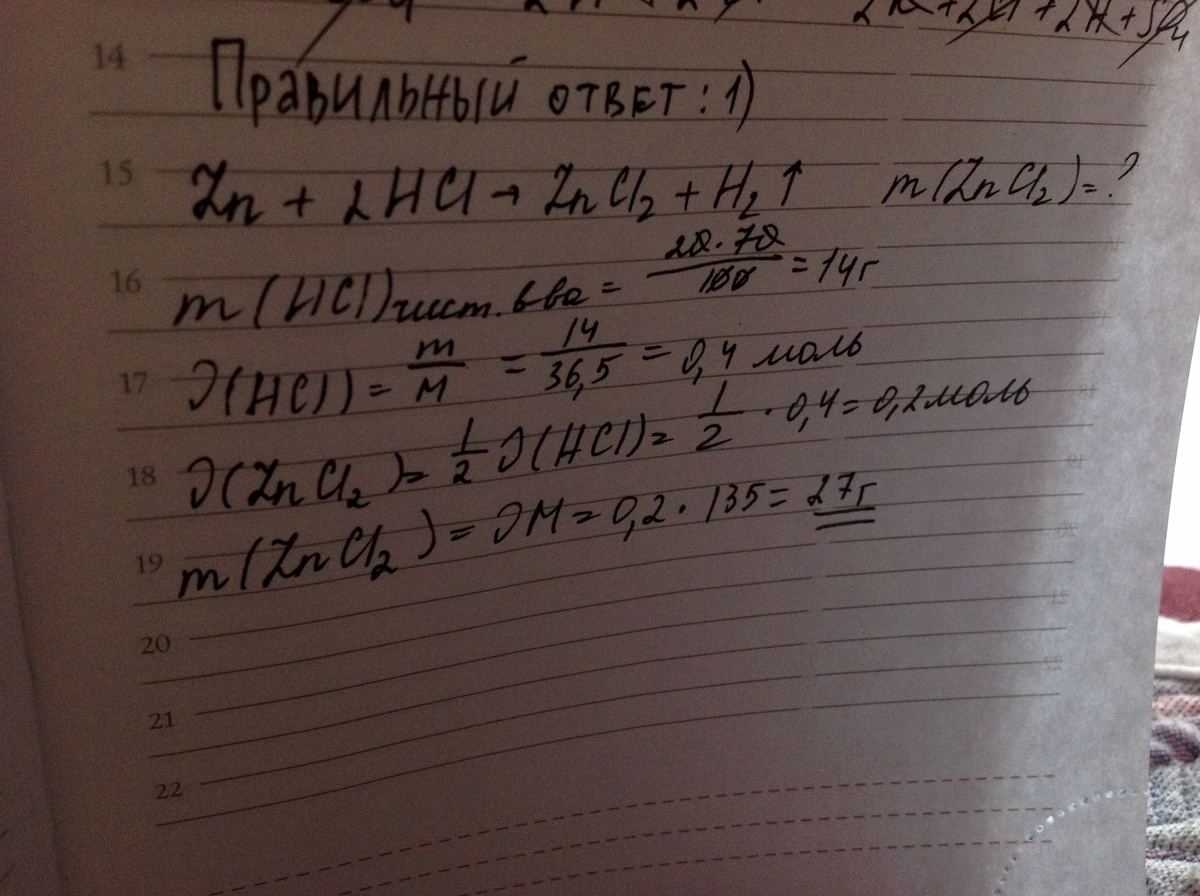 14
Правильный ответ: 1)
15
Zn + 2HCl → ZnCl₂ + H₂↑ m(ZnCl₂)=?
16
m(HCl)чист. в-ва = 20·70/100 = 14г
17
ν(HCl) = m/M = 14/36,5 = 0,4 моль
18
ν(ZnCl₂) = 1/2 ν(HCl) = 1/2 · 0,4 = 0,2 моль
19
m(ZnCl₂) = νM = 0,2 · 135 = 27г
20
21
22